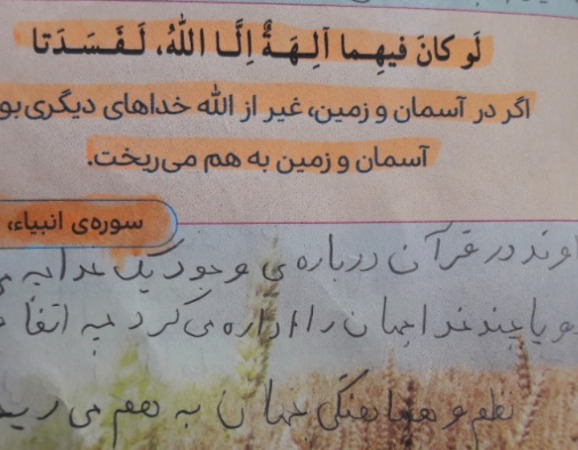 لَو كانَ فيهِما آلِهَةٌ اِلَّا اللّٰهُ، لَفَسَدَتا
اگر در آسمان و زمین، غیر از الله خداهای دیگری بو
آسمان و زمین به هم می‌ریخت.
سوره‌ی انبیاء،
اوند در قرآن درباره‌ی وجود یک خدا به
دو یا چند خدا جهان را اداره می‌کرد چه اتفا
نظم و هماهنگی جهان به هم می‌ری